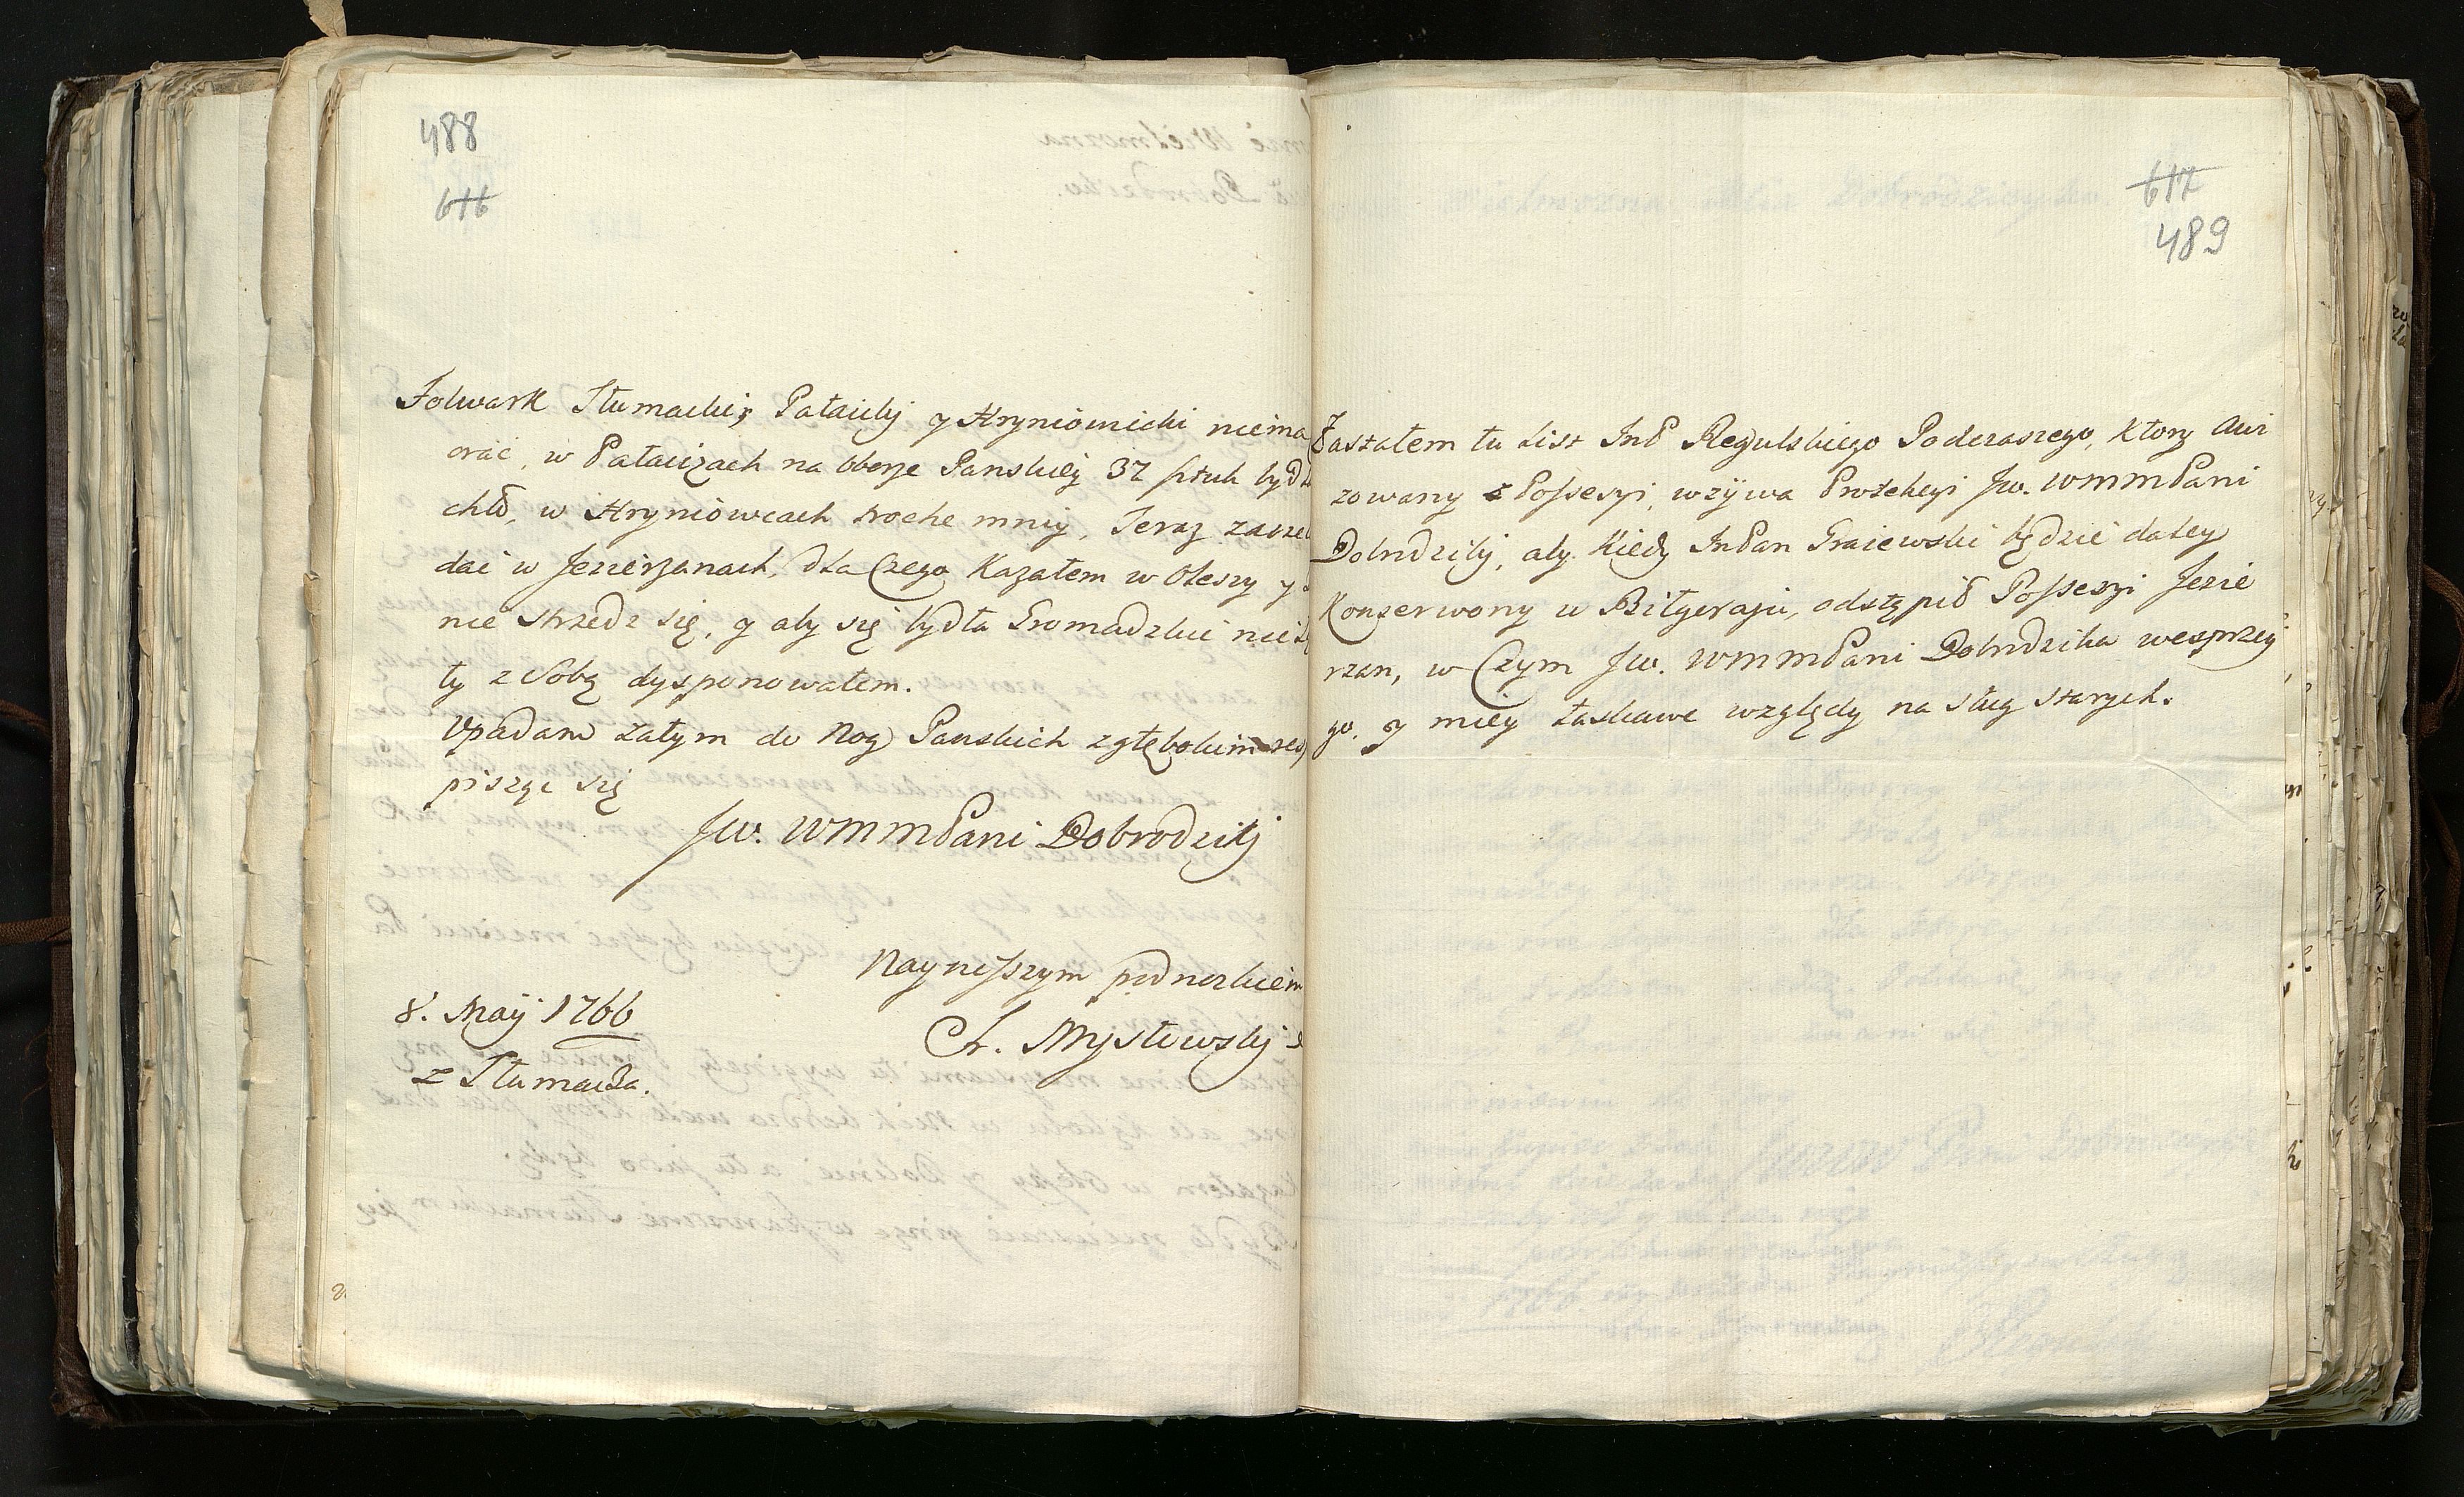 488
616
Folwark Tłumacki, Pałaicki y Hryniowiecki niema
orać, w Pałaiczach na oborze Panskiey 37 sztuk bydł
chło, w Hryniowcach troche mniy, Teraz zacze
dai w Jezierzanach, dla Czego Kazałem w Oleszy y
nie strzedz się, y aby się bydła Gromadzkie nie
ty z Sobą dysponowałem.
Upadam zatym do Nog Panskich z głębokim
pisząc się
Jw. WMMPani Dobrodziki
Nayniższym podnozkiem
Fr. Mysłowski
8. Maÿ 1766
z Tłumacza.
617
489
Zastałem tu List ImP Regulskiego Podczaszego, Ktory awi
zowany z Possesyi, wzywa Protekcyi Jw. WMMPani
Dobrodziki, aby Kiedy ImPan Graiewski będzie daley
Konserwony w Biłgoraju, odstąpił Possesyi Jezie
rzan, w Czym Jw. WMMPani Dobrodzika wesprzey
go, y miey łaskawe względy na sług starych.